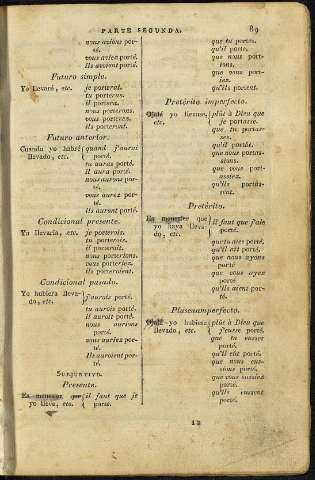 PARTE SEGUNDA. 89
nous avions por-
té.
vous aviez porté.
Ils avoient porté.
Futuro simple.
Yo llevaré, etc. je porterai.
tu porteras.
il portera.
nous porterons.
vous porterez.
ils porteront.
Futuro anterior.
Cuando yo habré quand j'aurai
llevado, etc. porté.
tu auras porté.
il aura porté.
nous aurons por-
té.
vous aurez por-
té.
ils auront porté.
Condicional presente.
Yo llevaria, etc. je porterois.
tu porterois.
il porteroit.
nous porterions.
vous porteriez.
ils porteroient.
Condicional pasado.
Yo hubiera lleva-
do, etc. j'aurois porté.
tu aurois porté.
il auroit porté.
nous aurions
porté.
vous auriez por-
té.
Ils auroient por-
té.
SUBJUNTIVO.
Presente.
Es menester que il faut que je
yo lleve, etc. porte.
que tu portes.
qu'il porte.
que nous por-
tions.
que vous por-
tiez.
qu'ils portent.
Pretérito imperfecto.
Ojalá yo llevase, plût à Dieu que
etc. je portasse.
que tu portas-
ses.
qu'il portât.
que nous portas-
sions.
que vous port-
assiez.
qu'ils portas-
sent.
Pretérito.
Es menester que
yo haya lleva-
do, etc. il faut que j'aie
porté.
que tu aies porté.
qu'il ait porté.
que nous ayons
porté
que vous ayez
porté
qu'ils aient por-
té.
Pluscuamperfecto.
Ojalá yo hubiese plût à Dieu que
llevado, etc. j'eusse porté.
que tu eusses
porté.
qu'il eût porté.
que nous eus-
sions porté.
que vous eussiez
porté.
qu'ils eussent
porté.
12